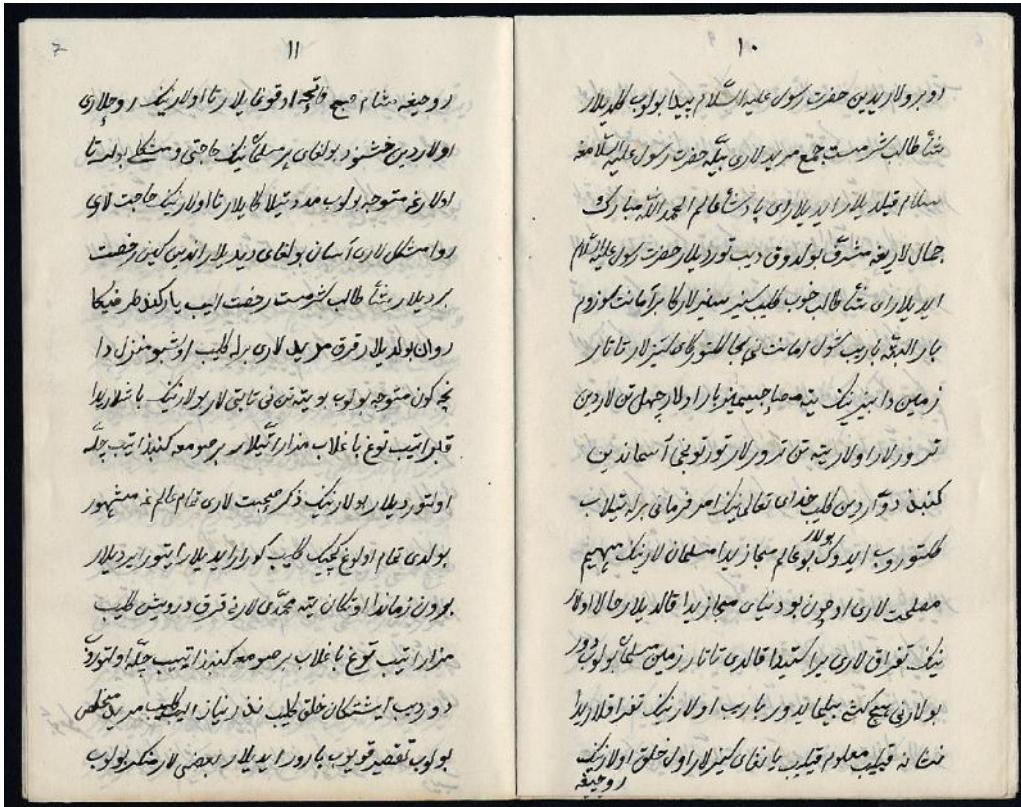 ١٠
دوبرولاریدین حضرت رسول علیه السلام پیدا بولوب کلدیلار
شأ طالب سرمست جمع مریدلاری بیله حضرت رسول علیه السلامغه
سلام قیلدیلار ایدیلار ای پادشأ عالم الحمد الله مبارک
جمال لاریغه مشرق بولدوق دیب توردیلار حضرت رسول علیه السلام
ایدیلار ای شأ طالب خوب کلیب سیز سیزلارکا بر آمانت سوزوم
بار البته باریب شول امانت نی بجا کلتورکای سیزلار تاتار
زمین دا بیزنینک یته مصاحبیمیز بار اولار چهل تن لاردین
تورورلار اولار یته تن تورورلار تورتونچی آسماندین
کنبذ دوآردین کلیب خدای تعالی نینک امر فرمانی برله تیلاب
کلتوروب ایدوک بولار بو عالم مجازیدا مسلمان لارنینک مهیم
مصلحت لاری اوچون بو دنیای مجازیدا قالدیلار حالا اولار
نینک تفراق لاری بیر استیدا قالدی تاتار زمین مسلمأ بولوب دور
بولارنی هیچ کشی بیلمایدور باریب اولارنینک تفراقلاریدا
نشانه قیلیب معلوم قیلیب یانغای سیزلار اول خلق اولارنینک
روحیغه
١١
روحیغه شام صبح فاتحه اوقوغایلار تا اولارنینک روحلاری
اولاردین خشنود بولغای هر مسلمأ نینک حاجتی و مشکلی بولسه تا
اولارغه متوجه بولوب مدد تیلاکایلار تا اولارنینک حاجت لاری
روا مشکل لاری آسان بولغای دیدیلار اندین کین رخصت
بردیلار شأ طالب سرمست رخصت الیب یارکند طرفیکا
روان بولدیلار قرق مریدلاری برله کلیب اوشبو منزل دا
نچه کون متوجه بولوب بو یته تن نی تافتی لار بولارنینک باشلاریدا
قبر ایتیب توغ باغلاب مزار اتتیلار بر صومعه کنبذ ایتیب چله
اولتوردیلار بولارنینک ذکر صحبت لاری تمام عالم غه مشهور
بولدی تمام اولوغ کچیک کلیب کورار ایدیلار ایتور ایردیلار
برون زماندا اوتکان یته محمدی لارنی قرق درویش کلیب
مزار ایتیب توغ باغلاب بر صومعه کنبذ ایتیب چله اولتوروب
دور دیب ایشتکان خلق کلیب نذر نیاز الیب کلیب مرید مخلص
بولوب تقصیر قویوب یارور ایدیلار بعضی لار منکر بولوب